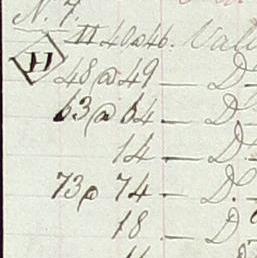 N. 7.
H 40 a 46. Vali
H 48 a 49 — D.
63 a 64 — D.
14 — D.
73 a 74 — D.
18 — D